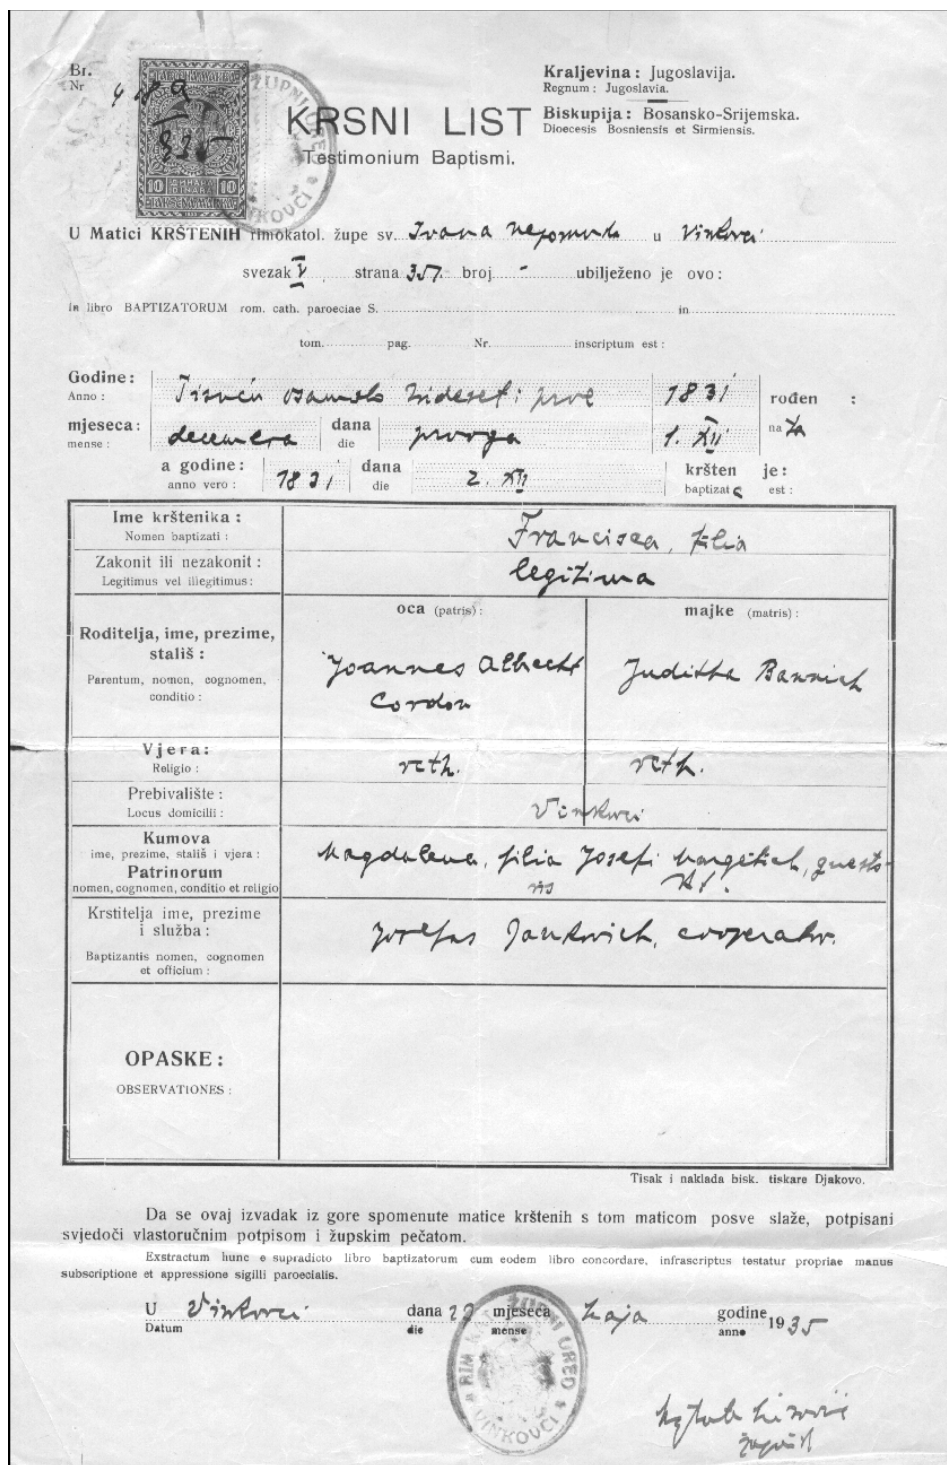 Br.
Nr
935
10 10
ŽUPNI URED
VINKOVCI
KRSNI LIST
Testimonium Baptismi.
Kraljevina: Jugoslavija.
Regnum: Jugoslavia.
Biskupija: Bosansko-Srijemska.
Dioecesis Bosniensis et Sirmiensis.
U Matici KRŠTENIH rimokatol. župe sv. Ivana Nepomuka u Vinkovci
svezak V strana 357. broj - ubilježeno je ovo:
in libro BAPTIZATORUM rom. cath. paroeciae S. in
tom. pag. Nr. inscriptum est:
Godine: Tisuću osamsto trideset i prve 1831 rođen :
Anno:
mjeseca: decembra dana prvoga 1. XII na
mense: die
a godine: 1831 dana 2. XII kršten je:
anno vero: die baptizat est:
Ime krštenika: Francisca, filia
Nomen baptizati:
Zakonit ili nezakonit: legitima
Legitimus vel illegitimus:
oca (patris): majke (matris):
Roditelja, ime, prezime,
stališ:
Parentum, nomen, cognomen,
conditio:
Joannes Albrecht
Cordon
Juditha Bannich
Vjera:
Religio:
Prebivalište: Vinkovci
Locus domicilii:
Kumova
ime, prezime, stališ i vjera:
Patrinorum
nomen, cognomen, conditio et religio
Magdalena, filia Josefi Margetich,
Krstitelja ime, prezime
i služba:
Baptizantis nomen, cognomen
et officium:
Josefus Jankovich, cooperator.
OPASKE:
OBSERVATIONES:
Tisak i naklada bisk. tiskare Djakovo.
Da se ovaj izvadak iz gore spomenute matice krštenih s tom maticom posve slaže, potpisani
svjedoči vlastoručnim potpisom i župskim pečatom.
Extractum hunc e supradicto libro baptizatorum cum eodem libro concordare, infrascriptus testatur propriae manus
subscriptione et appressione sigilli paroecialis.
U Vinkovci dana mjeseca maja godine 1935
Datum die mense anno
RIM. KAT. ŽUPNI URED
VINKOVCI
župnik